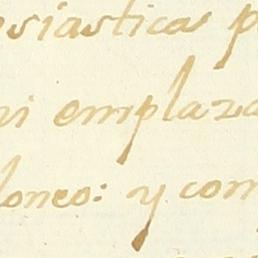 esiasticas p
ni emplaza
loneo: y com